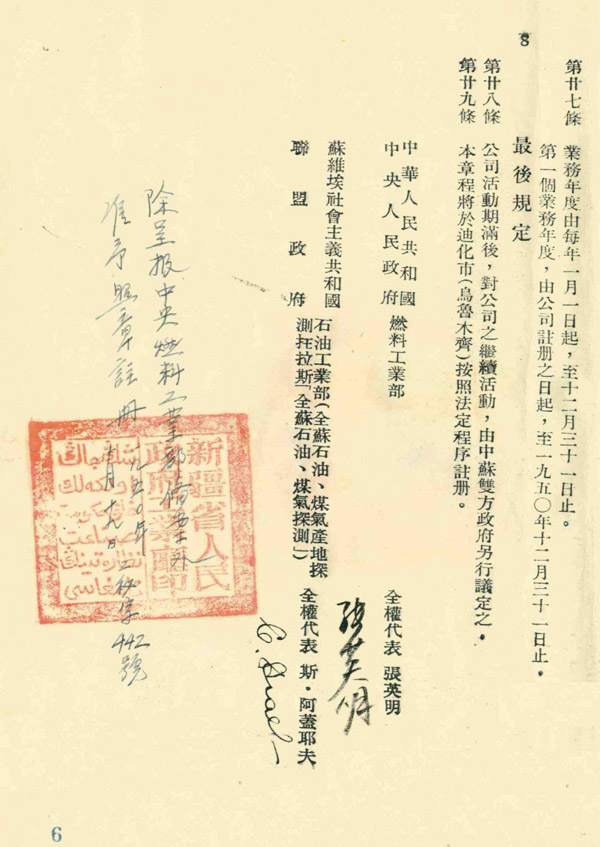 8
第廿七條　業務年度由每年一月一日起，至十二月三十一日止。
第一個業務年度，由公司註册之日起，至一九五〇年十二月三十一日止．
最後規定
第廿八條　公司活動期滿後，對公司之繼續活動，由中蘇雙方政府另行議定之．
第廿九條　本章程將於迪化市(烏魯木齊)按照法定程序註册。
中華人民共和國
中央人民政府　燃料工業部　全權代表 張英明
張英明
蘇維埃社會主義共和國
聯盟政府
石油工業部(全蘇石油、煤氣產地探
測托拉斯「全蘇石油、煤氣探測」)　全權代表 斯・阿蓋耶夫
除呈報中央燃料工業部備案外
准予照章註册 一九五〇年 十月十九日 工秘字442號
新疆省人民
政府工業廳印
6